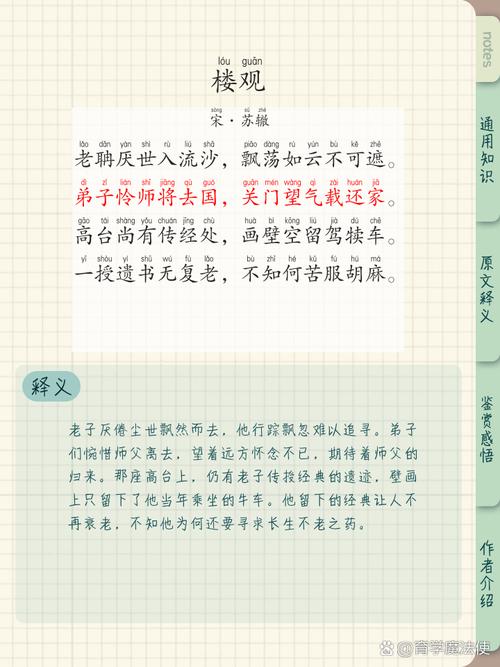 lóu guān
楼观
sòng sū zhé
宋·苏辙
lǎo dān yàn shì rù liú shā piāo dàng rú yún bù kě zhē
老聃厌世入流沙，飘荡如云不可遮。
dì zǐ lián shī jiāng qù guó guān mén wàng qì zài huán jiā
弟子怜师将去国，关门望气载还家。
gāo tái shàng yǒu chuán jīng chù huà bì kōng liú jià dú chē
高台尚有传经处，画壁空留驾犊车。
yī shòu yí shū wú fù lǎo bù zhī hé kǔ fú hú má
一授遗书无复老，不知何苦服胡麻。
释义
老子厌倦尘世飘然而去，他行踪飘忽难以追寻。弟子
们惋惜师父离去，望着远方怀念不已，期待着师父的
归来。那座高台上，仍有老子传授经典的遗迹，壁画
上只留下了他当年乘坐的牛车。他留下的经典让人不
再衰老，不知他为何还要寻求长生不老之药。
notes
通用知识
原文释义
鉴赏感悟
作者介绍
@育学魔法使